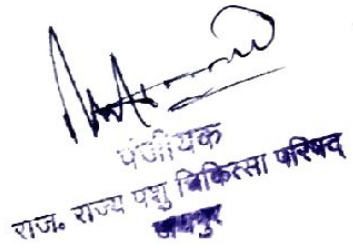 पंजीयक
राज. राज्य पशु चिकित्सा परिषद
जयपुर